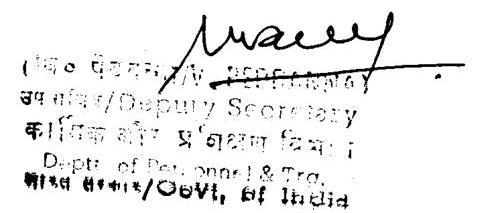 (वि० पेद्दन्ना/V. PEDDANNA)
उप सचिव/Deputy Secretary
कार्मिक और प्रशिक्षण विभाग
Deptt. of Personnel & Trg.
भारत सरकार/Govt. of India